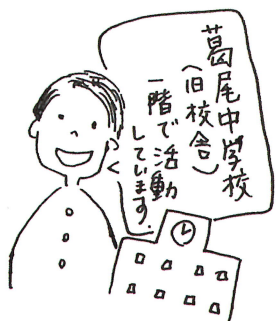 葛尾中学校
(旧校舎)
一階で活動
しています。